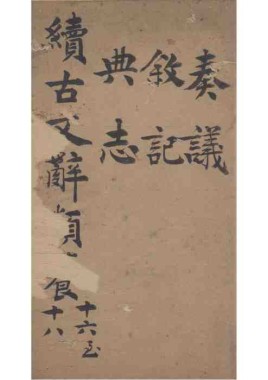 奏議
敘記
典志
續古文辭類
十六至
十八